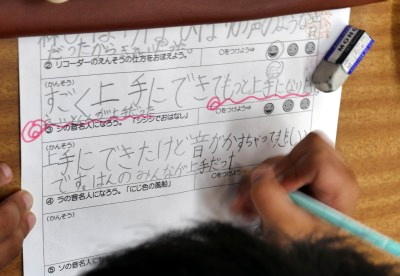 だったからきれいだった。
② リコーダーのえんそうの仕方をおぼえよう。
○をつけよう⇒
(かんそう)
すごく上手にできてもっと上手になりたい
③ シの音名人になろう。「シッシでおはなし」
○をつけよう⇒
(かんそう)
上手にできたけど音がかすちゃって悲しい
です。はんのみんなが上手だった
④ ラの音名人になろう。「にじ色の風船」
○をつけよう⇒
(かんそう)
⑤ ソの音名人に
MONO